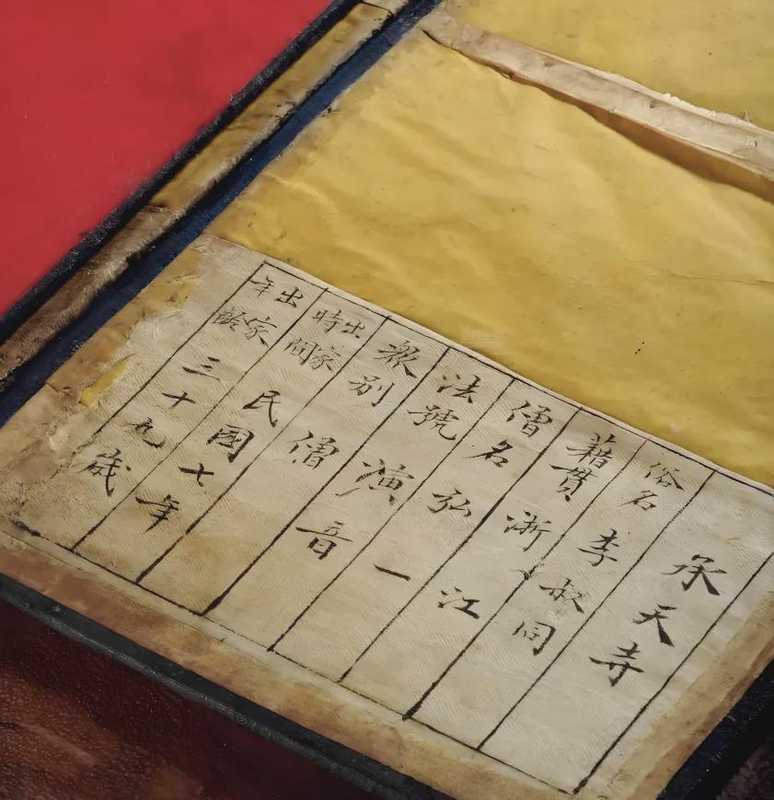 承天寺
俗名 李叔同
藉貫 浙江
僧名 弘一
法號 演音
衆别 僧
出家時間 民國七年
出家年齡 三十九歲